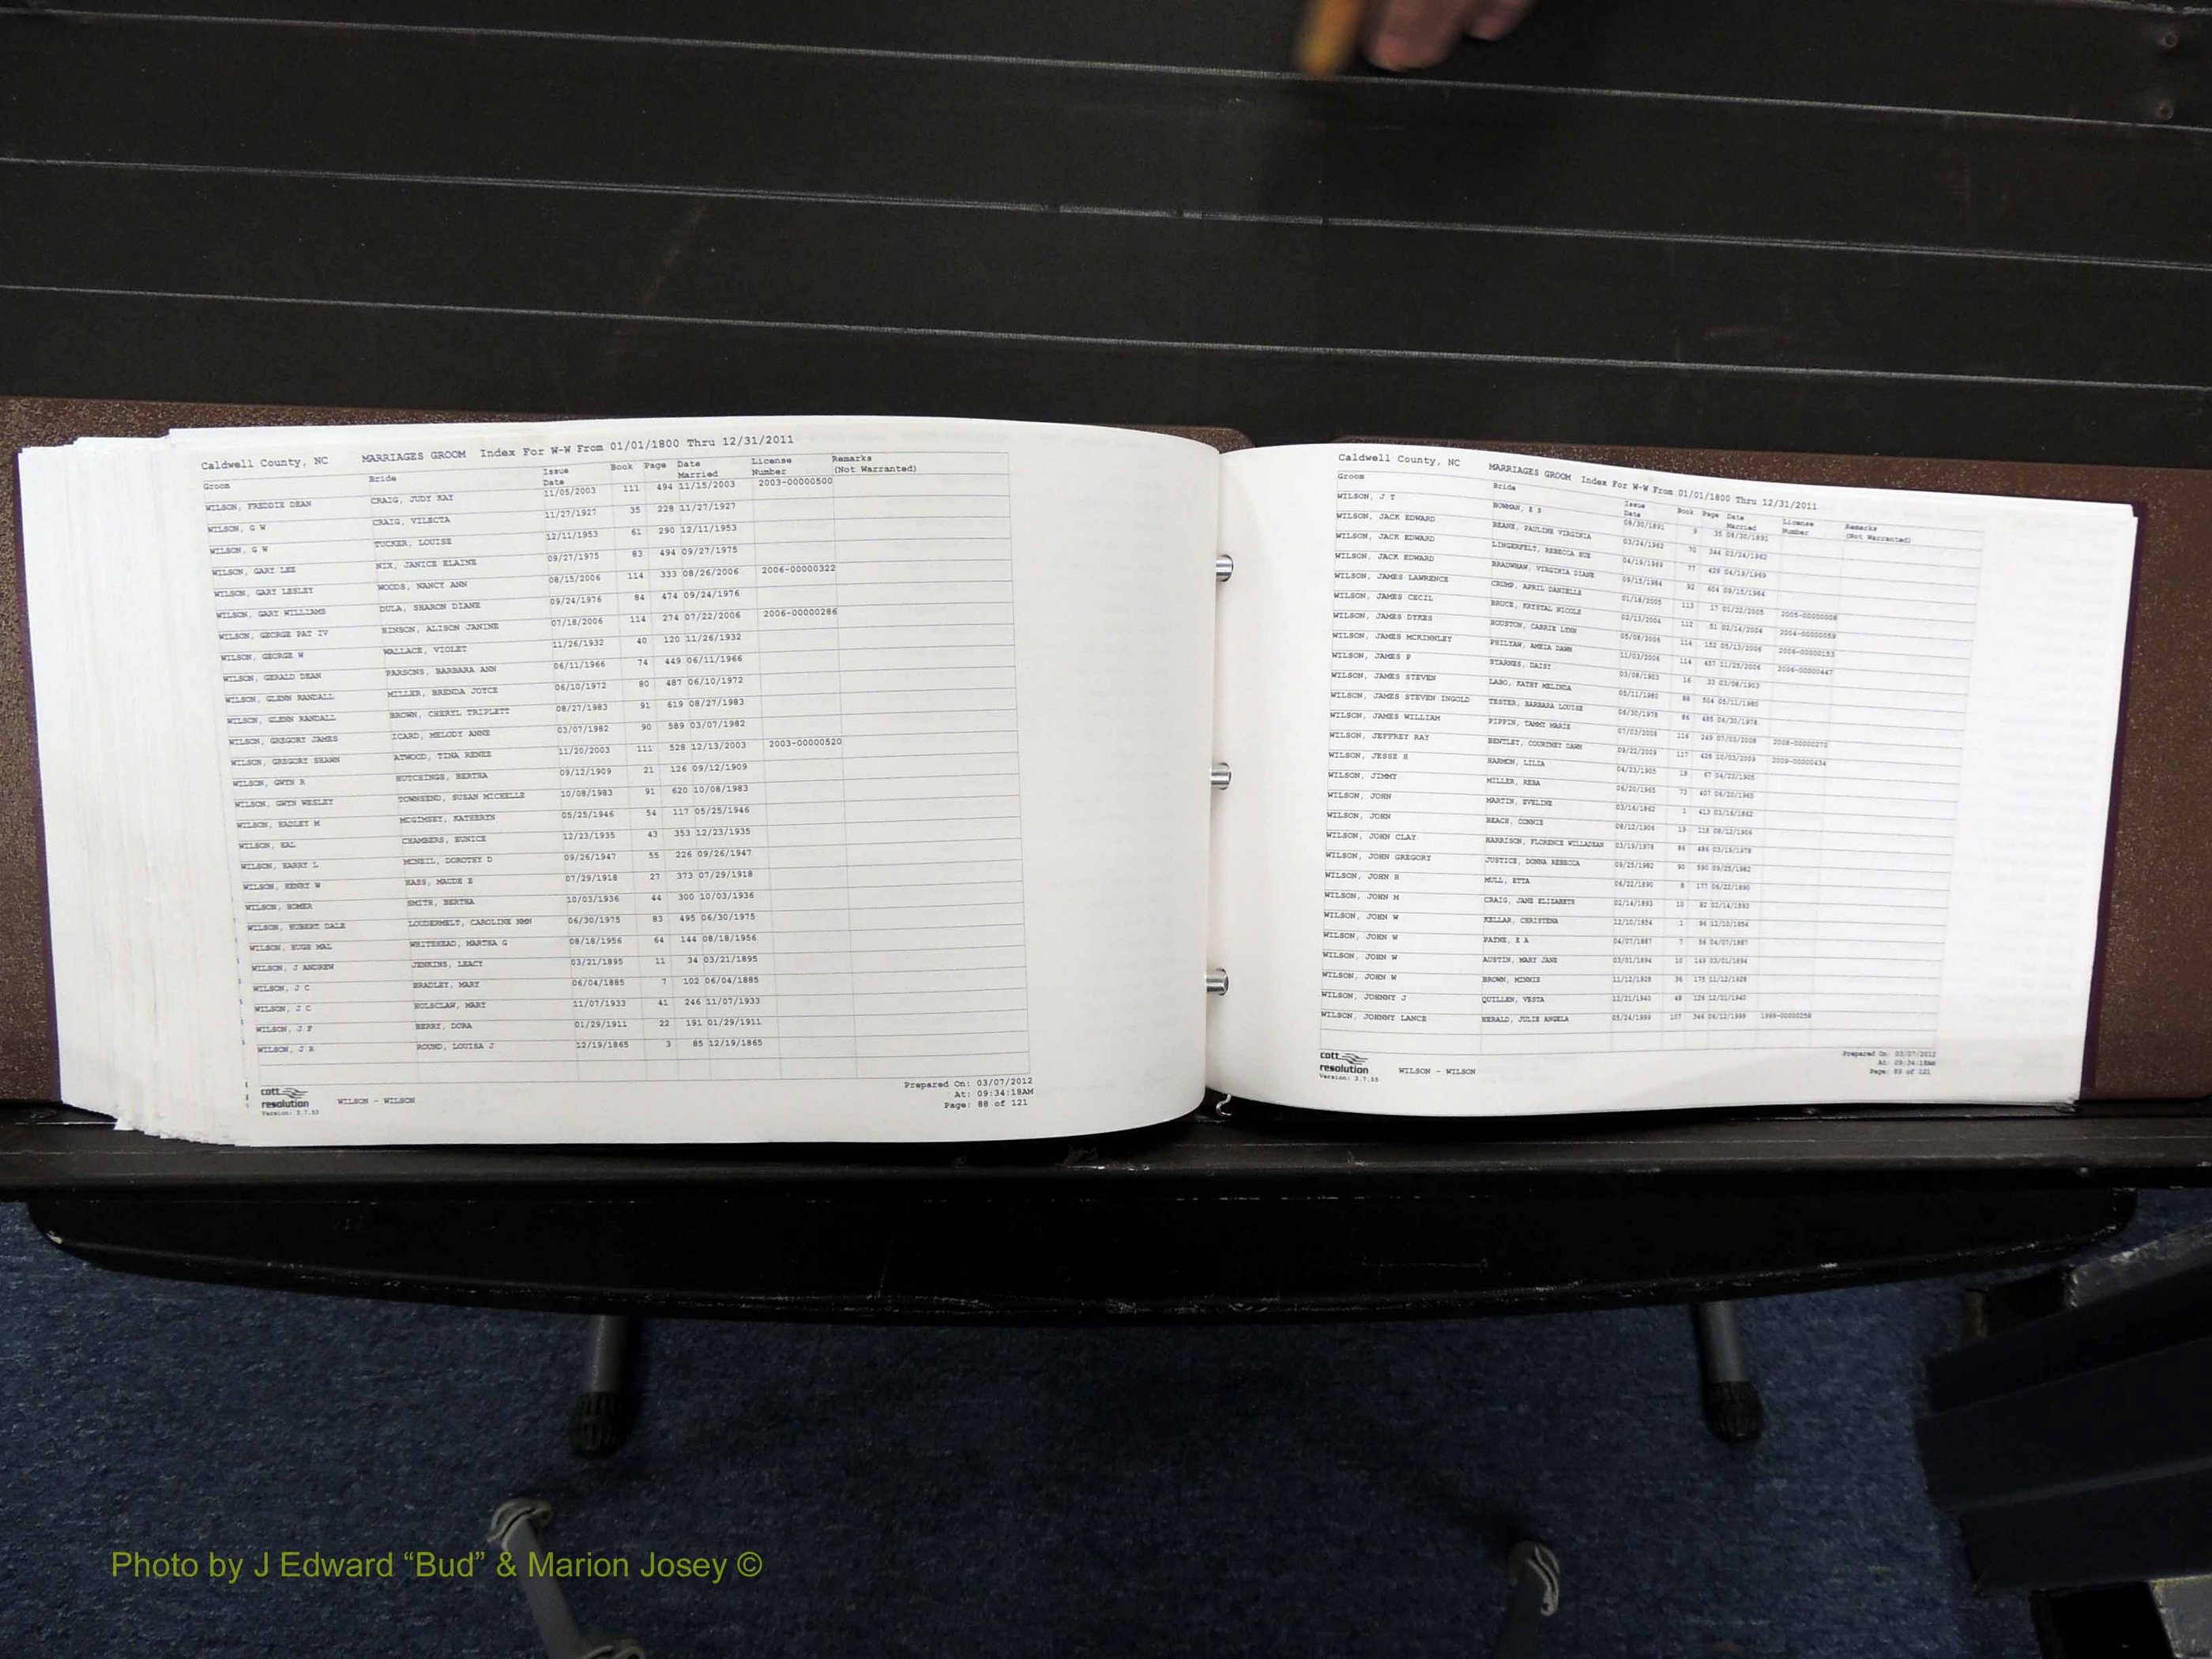 Caldwell County, NC MARRIAGES GROOM Index For W-W From 01/01/1800 Thru 12/31/2011
Groom Bride Issue Date Book Page Date Married License Number Remarks (Not Warranted)
WILSON, FREDDIE DEAN CRAIG, JUDY KAY 11/05/2003 111 494 11/15/2003 2003-00000500
WILSON, G W CRAIG, VILECTA 11/27/1927 35 228 11/27/1927
WILSON, G W TUCKER, LOUISE 12/11/1953 61 290 12/11/1953
WILSON, GARY LEE NIX, JANICE ELAINE 09/27/1975 83 494 09/27/1975
WILSON, GARY LESLEY WOODS, NANCY ANN 08/15/2006 114 333 08/26/2006 2006-00000322
WILSON, GARY WILLIAMS DULA, SHARON DIANE 09/24/1976 84 474 09/24/1976
WILSON, GEORGE PAT IV HINSON, ALISON JANINE 07/18/2006 114 274 07/22/2006 2006-00000286
WILSON, GEORGE W WALLACE, VIOLET 11/26/1932 40 120 11/26/1932
WILSON, GERALD DEAN PARSONS, BARBARA ANN 06/11/1966 74 449 06/11/1966
WILSON, GLENN RANDALL MILLER, BRENDA JOYCE 06/10/1972 80 487 06/10/1972
WILSON, GLENN RANDALL BROWN, CHERYL TRIPLETT 08/27/1983 91 619 08/27/1983
WILSON, GREGORY JAMES ICARD, MELODY ANNE 03/07/1982 90 589 03/07/1982
WILSON, GREGORY SHAWN ATWOOD, TINA RENEE 11/20/2003 111 528 12/13/2003 2003-00000520
WILSON, GWYN R HUTCHINGS, BERTHA 09/12/1909 21 126 09/12/1909
WILSON, GWYN WESLEY TOWNSEND, SUSAN MICHELLE 10/08/1983 91 620 10/08/1983
WILSON, HADLEY M MCGIMSEY, KATHERYN 05/25/1946 54 117 05/25/1946
WILSON, HAL CHAMBERS, EUNICE 12/23/1935 43 353 12/23/1935
WILSON, HARRY L MCNEIL, DOROTHY D 09/26/1947 55 226 09/26/1947
WILSON, HENRY W HASS, MAUDE E 07/29/1918 27 373 07/29/1918
WILSON, HOMER SMITH, BERTHA 10/03/1936 44 300 10/03/1936
WILSON, HUBERT DALE LOUDERMELT, CAROLINE NMN 06/30/1975 83 495 06/30/1975
WILSON, HUGH MAL WHITEHEAD, MARTHA G 08/18/1956 64 144 08/18/1956
WILSON, J ANDREW JENKINS, LEACY 03/21/1895 11 34 03/21/1895
WILSON, J C BRADLEY, MARY 06/04/1885 7 102 06/04/1885
WILSON, J C HOLSCLAW, MARY 11/07/1933 41 246 11/07/1933
WILSON, J F BERRY, DORA 01/29/1911 22 191 01/29/1911
WILSON, J R ROUND, LOUISA J 12/19/1865 3 85 12/19/1865
cott resolution
Version: 2.7.53
WILSON - WILSON
Prepared On: 03/07/2012
At: 09:34:18AM
Page: 88 of 121
Caldwell County, NC MARRIAGES GROOM Index For W-W From 01/01/1800 Thru 12/31/2011
Groom Bride Issue Date Book Page Date Married License Number Remarks (Not Warranted)
WILSON, J T BOWMAN, E S 08/30/1891 9 35 08/30/1891
WILSON, JACK EDWARD BEANE, PAULINE VIRGINIA 03/24/1962 70 344 03/24/1962
WILSON, JACK EDWARD LINGERFELT, REBECCA SUE 04/19/1969 77 429 04/19/1969
WILSON, JACK EDWARD BRADSHAW, VIRGINIA DIANE 09/15/1984 92 604 09/15/1984
WILSON, JAMES LAWRENCE CRUMP, APRIL DANIELLE 01/18/2005 113 17 01/22/2005 2005-00000008
WILSON, JAMES CECIL BRUCE, KRYSTAL NICOLE 02/13/2004 112 51 02/14/2004 2004-00000059
WILSON, JAMES DYKES HOUSTON, CARRIE LYNN 05/08/2006 114 152 05/13/2006 2006-00000153
WILSON, JAMES MCKINNLEY PHILYAW, AMEIA DAWN 11/03/2006 114 457 11/25/2006 2006-00000447
WILSON, JAMES P STARNES, DAISY 03/08/1903 16 33 03/08/1903
WILSON, JAMES STEVEN LABO, KATHY MELINDA 05/11/1980 88 504 05/11/1980
WILSON, JAMES STEVEN INGOLD TESTER, BARBARA LOUISE 06/30/1978 86 485 06/30/1978
WILSON, JAMES WILLIAM PIPPIN, TAMMY MARIE 07/03/2008 116 249 07/03/2008 2008-00000270
WILSON, JEFFREY RAY BENTLEY, COURTNEY DAWN 09/22/2009 117 428 10/03/2009 2009-00000434
WILSON, JESSE H HARMON, LILIA 04/23/1905 18 67 04/23/1905
WILSON, JIMMY MILLER, REBA 06/20/1965 73 407 06/20/1965
WILSON, JOHN MARTIN, EVELINE 03/16/1862 1 413 03/16/1862
WILSON, JOHN BEACH, CONNIE 08/12/1906 19 118 08/12/1906
WILSON, JOHN CLAY HARRISON, FLORENCE WILLADEAN 03/19/1978 86 486 03/19/1978
WILSON, JOHN GREGORY JUSTICE, DONNA REBECCA 09/25/1982 90 590 09/25/1982
WILSON, JOHN H MULL, ETTA 06/22/1890 8 177 06/22/1890
WILSON, JOHN M CRAIG, JANE ELIZABETH 02/14/1893 10 82 02/14/1893
WILSON, JOHN W KELLAR, CHRISTENA 12/10/1854 1 96 12/10/1854
WILSON, JOHN W PAYNE, E A 04/07/1887 7 56 04/07/1887
WILSON, JOHN W AUSTIN, MARY JANE 03/01/1894 10 149 03/01/1894
WILSON, JOHN W BROWN, MINNIE 11/12/1928 36 175 11/12/1928
WILSON, JOHNNY J QUILLEN, VESTA 12/21/1940 48 126 12/21/1940
WILSON, JOHNNY LANCE HERALD, JULIE ANGELA 05/24/1999 107 346 06/12/1999 1999-00000258
cott resolution
Version: 2.7.53
WILSON - WILSON
Prepared On: 03/07/2012
At: 09:34:18AM
Page: 89 of 121
Photo by J Edward “Bud” & Marion Josey ©